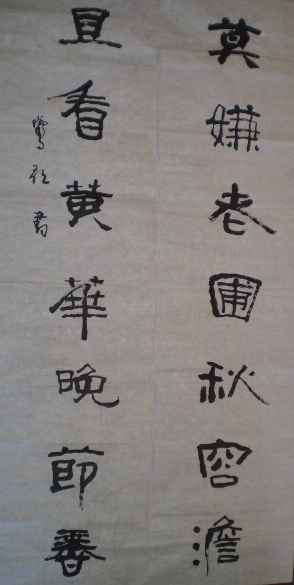 莫嫌老圃秋容澹
且看黄華晚節香
書